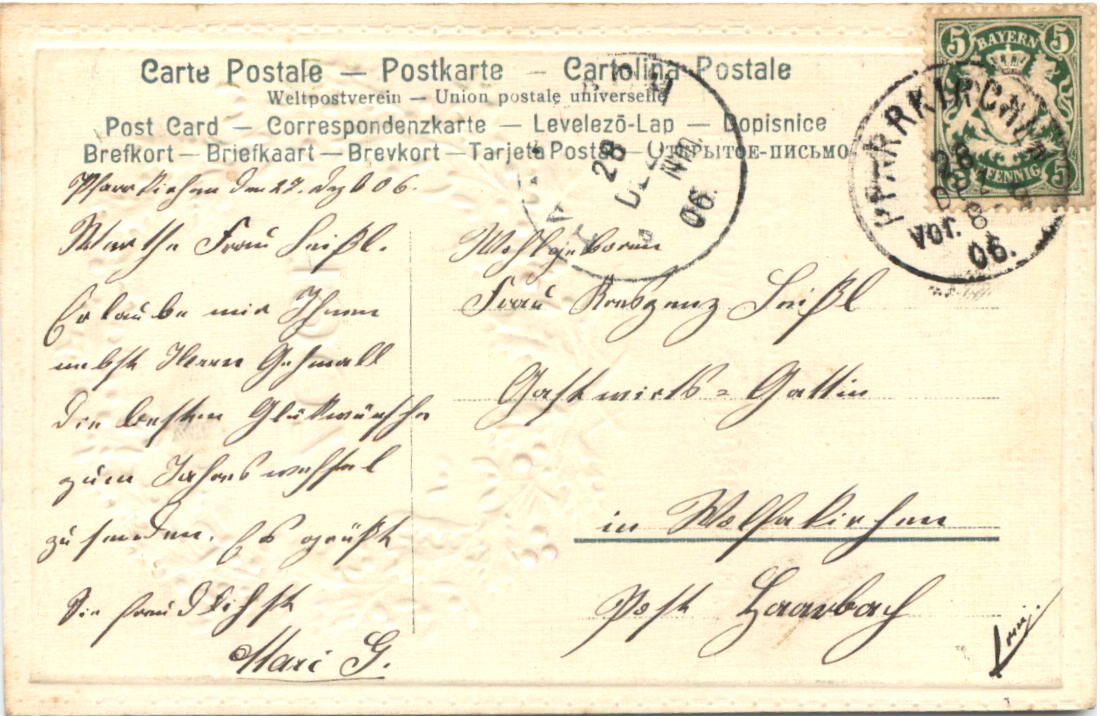 Carte Postale — Postkarte — Cartolina Postale
Weltpostverein — Union postale universelle
Post Card — Correspondenzkarte — Levelező-Lap — Dopisnice
Brefkort — Briefkaart — Brevkort — Tarjeta Postal — Открытое-письмо
Pfarrkirchen den 27. Dez. 06.
Werthe Frau Seißl.
Erlaube mir Ihnen
nebst Herrn Gehmall
die besten Glückwünsche
zum Jahreswechsel
zu senden. Es grüßt
Sie freundlichst
Mari G.
Wohlgeboren
Frau Kreszenz Seißl
Gastwirts=Gattin
in Wolfakirchen
Post Haarbach
28
DEZ
NM
06.
5 BAYERN 5
5 PFENNIG 5
PFARRKIRCHEN
28
DEZ
Vor. 8
06.